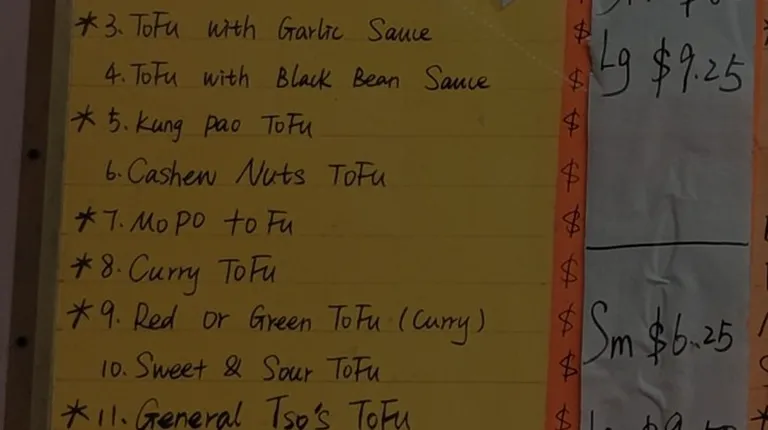 *3. ToFu with Garlic Sauce $
4. ToFu with Black Bean Sauce $
*5. Kung pao ToFu $
6. Cashew Nuts ToFu $
*7. Mo Po to Fu $
*8. Curry ToFu $
*9. Red or Green ToFu (Curry) $
10. Sweet & Sour ToFu $
*11. General Tso's ToFu $
Lg $9.25
Sm $6.25